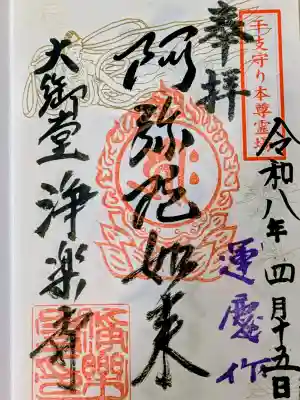 干支守り本尊霊場
奉拝
令和八年四月十五日
運慶作
阿弥陀如来
大御堂 浄楽寺